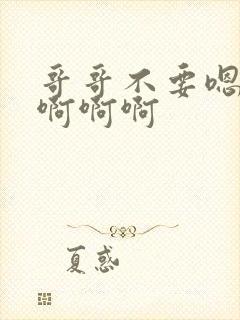 哥哥不要嗯
啊啊啊
夏惑